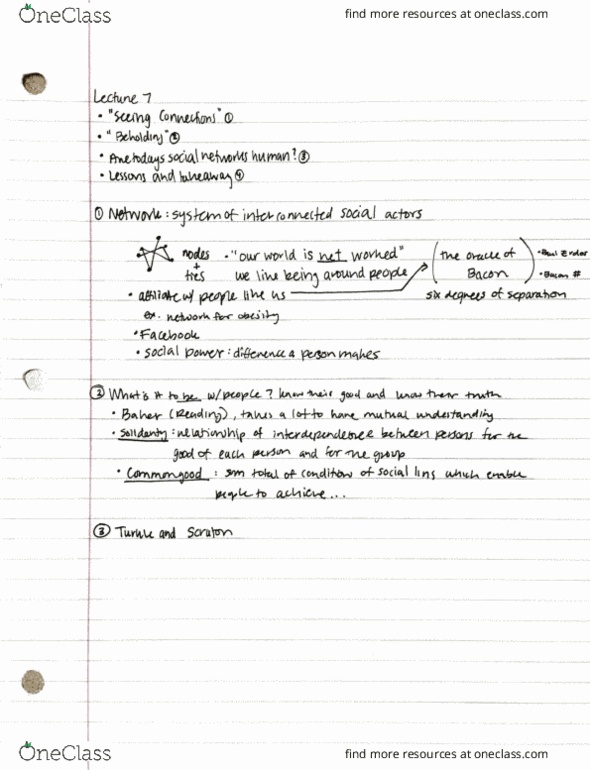 OneClass
find more resources at oneclass.com
Lecture 7
• "Seeing Connections" ①
• "Beholding" ②
• Are todays social networks human? ③
• Lessons and takeaway ④
① Network: system of interconnected social actors
nodes + ties
• "our world is net worked"
we like being around people
(the oracle of Bacon)
• Paul Erdor
• Bacon #
six degrees of separation
• affiliate w/ people like us
ex. network for obesity
• Facebook
• social power: difference a person makes
② What is it to be w/ people? know their good and know their truth
• Baker (Reading), takes a lot to have mutual understanding
• Solidarity: relationship of interdependence between persons for the
good of each person and for the group
• Common good: sum total of conditions of social living which enable
people to achieve...
③ Turkle and
OneClass
find more resources at oneclass.com